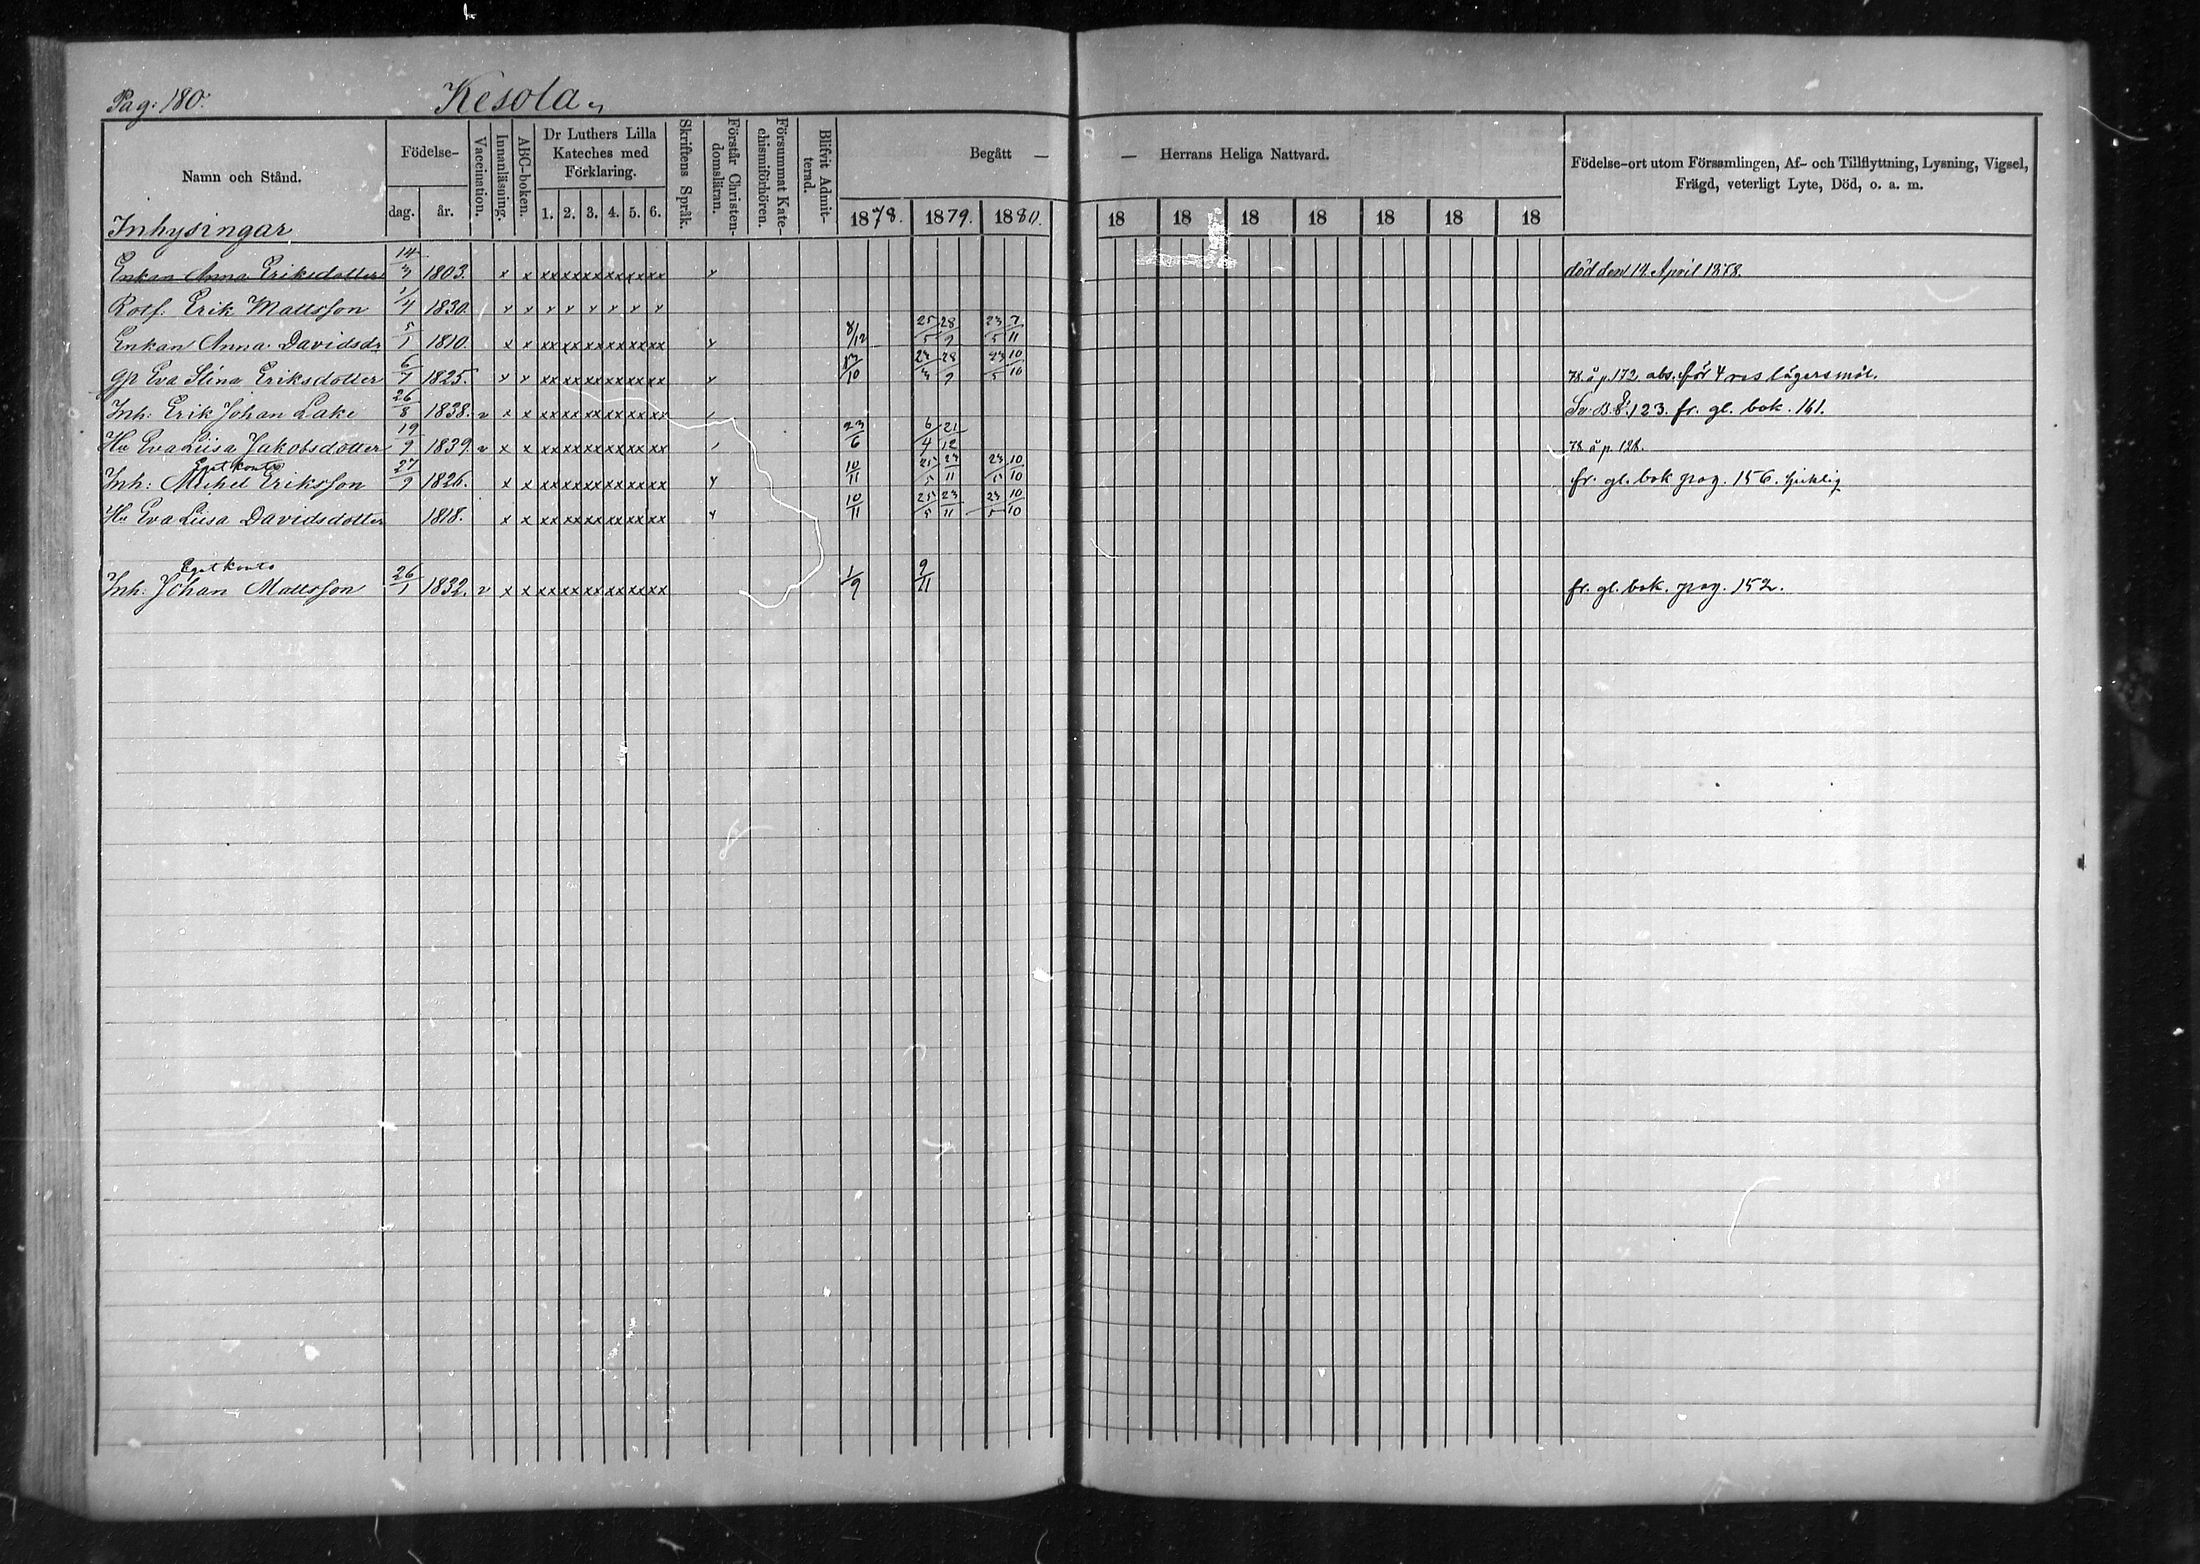 Pag: 180. Kesola
Namn och Stånd. Födelse- dag. år. Vaccination. Innanläsning. ABC-boken. Dr Luthers Lilla Kateches med Förklaring. 1. 2. 3. 4. 5. 6. Skriftens Språk. Förstår Christendomsläran. Försummat Katechismiförhören. Blifvit Admitterad. Begått — — Herrans Heliga Nattvard. Födelse-ort utom Församlingen, Af- och Tillflyttning, Lysning, Vigsel, Frägd, veterligt Lyte, Död, o. a. m.
1878. 1879. 1880. 18 18 18 18 18 18 18
Inhysingar
Enkan Anna Eriksdotter 14/3 1803. x x xx xx xx xx xx xx x död den 14 April 1878.
Rotf. Erik Mattsson 1/4 1830. x x x x x x x x
Enkan Anna Davidsdr 5/1 1810. x x xx xx xx xx xx xx x 8/12 25/5 28/9 23/5 7/11
Gp Eva Stina Eriksdotter 6/7 1825. x x xx xx xx xx xx xx x 13/10 23/3 28/9 23/5 10/10 78. å p. 172. abs. för 4 res lägersmål.
Inh: Erik Johan Lake 26/8 1838. v x x xx xx xx xx xx xx Sv. B. 8. 123. fr. gl. bok. 161.
Hu Eva Lisa Jakobsdotter 19/9 1839. v x x xx xx xx xx xx xx 23/6 6/4 21/12 78 å p. 128.
Eget konto
Inh: Michel Eriksson 27/9 1826. x x xx xx xx xx xx xx x 10/11 25/5 23/11 23/5 10/10 fr. gl. bok pag. 156. sjuklig
Hu Eva Lisa Davidsdotter 1818. x x xx xx xx xx xx xx x 10/11 25/5 23/11 23/5 10/10
Eget konto
Inh: Johan Mattsson 26/1 1832. v x x xx xx xx xx xx xx 1/9 9/11 fr. gl. bok. pag. 152.